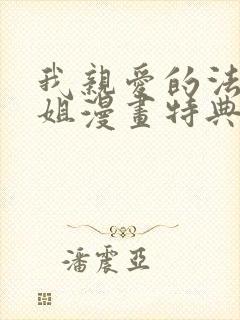 我親愛的法
姐漫畫特典
潘震亞